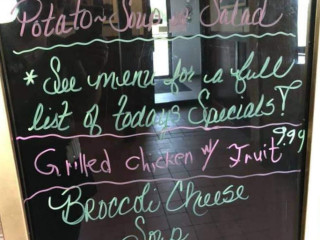 Potato~Soup & Salad
* See menu for a full
list of todays Specials!
9.99
Grilled chicken w/ Fruit
Broccoli Cheese
Soup